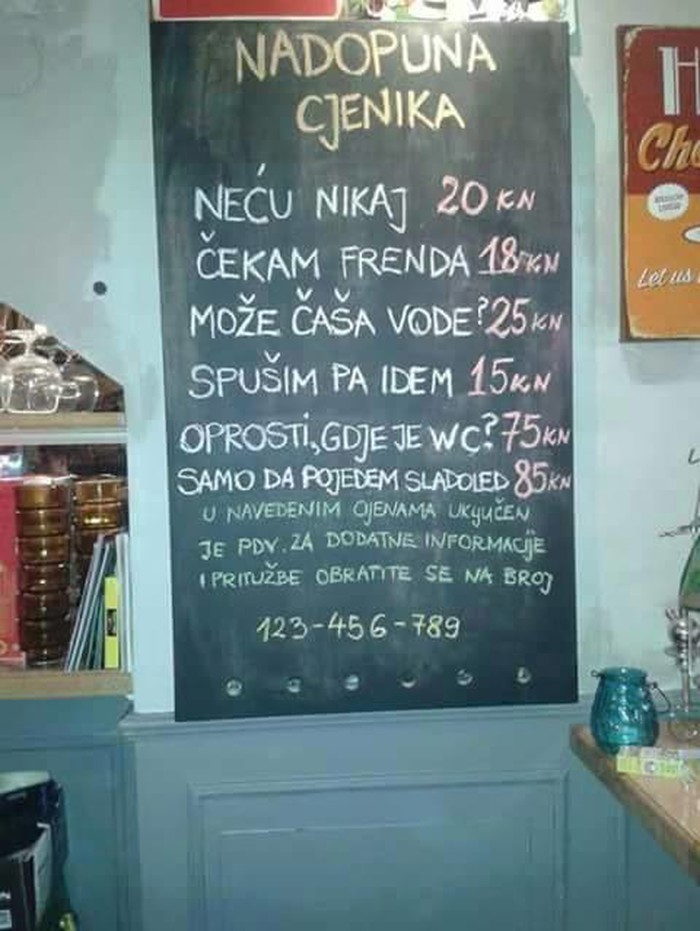 NADOPUNA
CJENIKA
NEĆU NIKAJ 20 KN
ČEKAM FRENDA 18 KN
MOŽE ČAŠA VODE? 25 KN
SPUŠIM PA IDEM 15 KN
OPROSTI, GDJE JE WC? 75 KN
SAMO DA POJEDEM SLADOLED 85 KN
U NAVEDENIM CJENAMA UKLJUČEN
JE PDV. ZA DODATNE INFORMACIJE
I PRITUŽBE OBRATITE SE NA BROJ
123-456-789
Let us